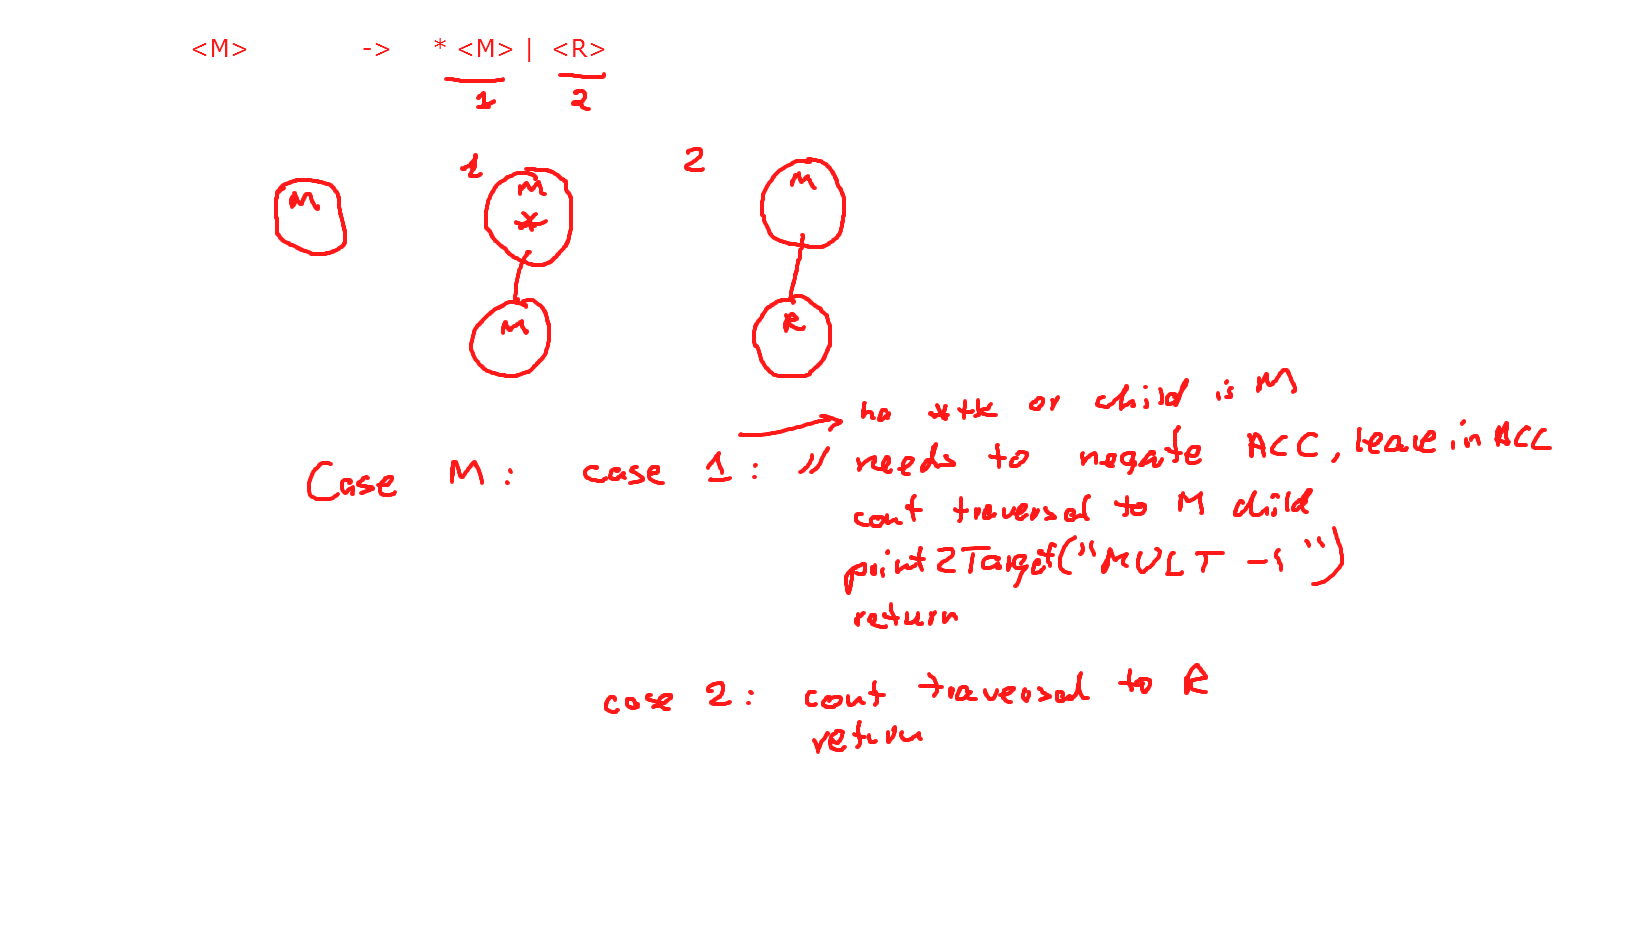 <M> -> * <M> | <R>
1 2
1 2
M M M
*
M R
ha *tk or child is M
Case M: case 1: // needs to negate ACC, leave in ACC
cont traversal to M child
print2Target("MULT -1")
return
case 2: cont traversal to R
return